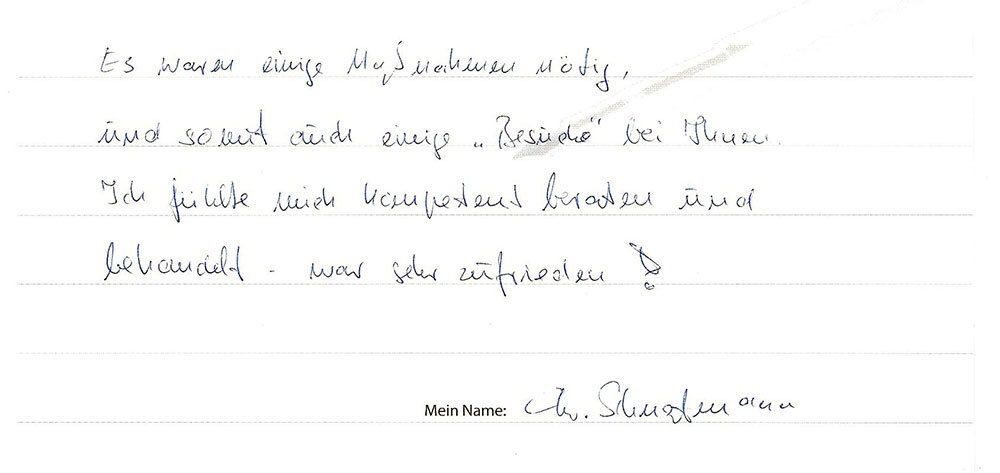 Es waren einige Maßnahmen nötig,
und somit auch einige „Besuche“ bei Ihnen.
Ich fühlte mich kompetent beraten und
behandelt - war sehr zufrieden!
Mein Name: Chr.